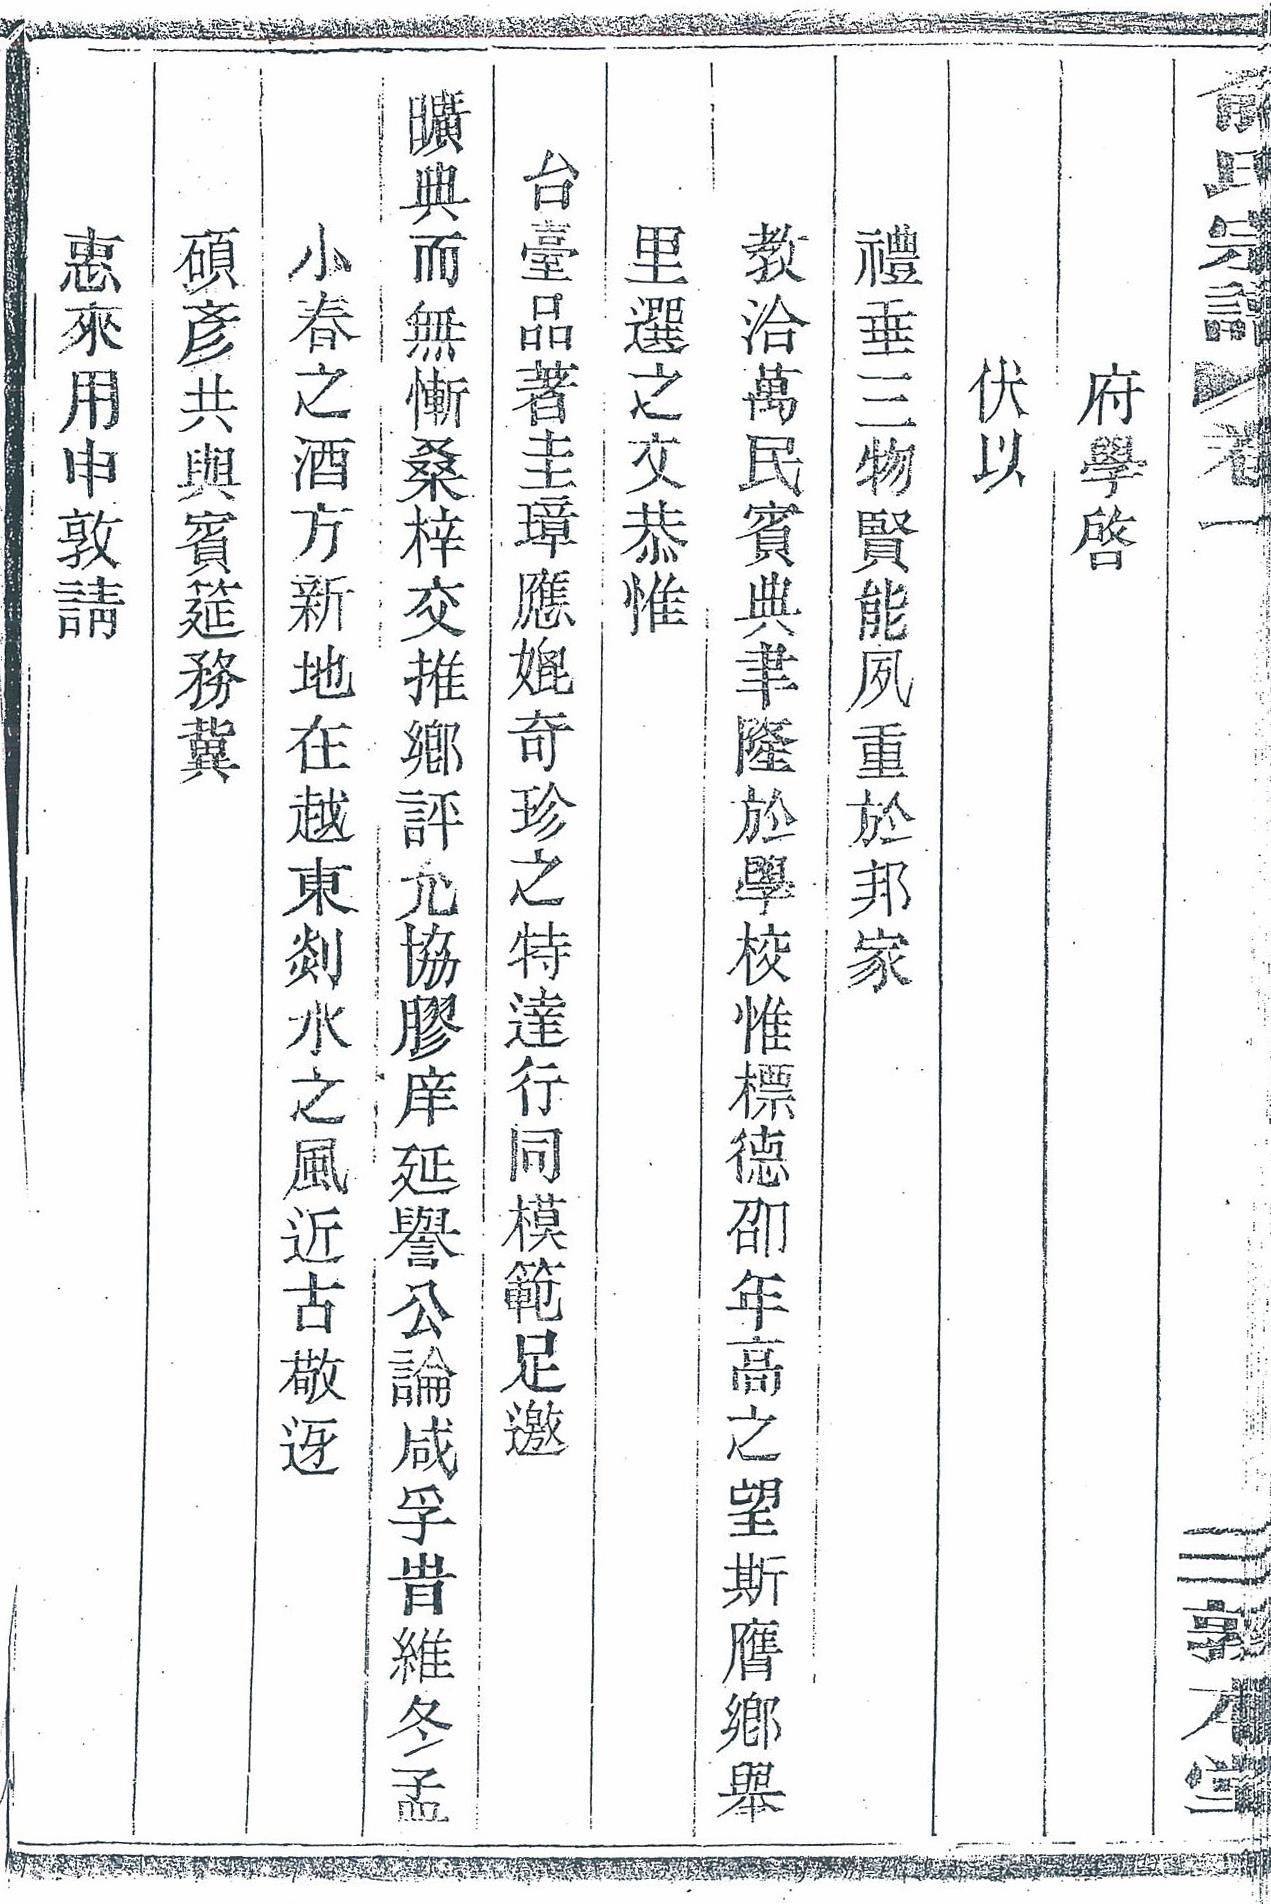 俞氏宗譜 卷一 三 敦本堂
府學啓
伏以
禮垂三物賢能夙重於邦家
教洽萬民賓典聿隆於學校惟標德邵年高之望斯膺鄉舉
里選之文恭惟
台臺品著圭璋應媲奇珍之特達行同模範足邀
曠典而無慚桑梓交推鄉評允協膠庠延譽公論咸孚旹維冬孟
小春之酒方新地在越東剡水之風近古敬迓
碩彥共與賓筵務冀
惠來用申敦請